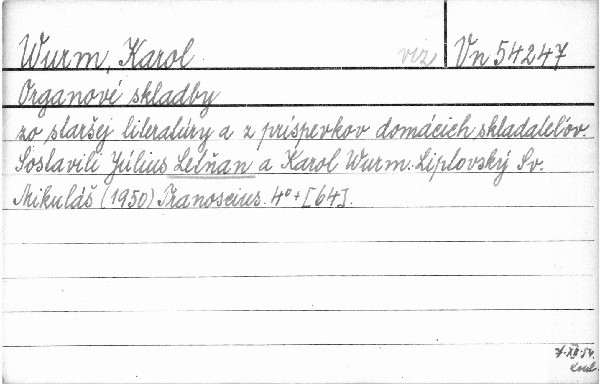 Wurm, Karol viz Vn 54247
Organové skladby
zo staršej literatúry a z príspevkov domácich skladateľov.
Sostavili Július Letňan a Karol Wurm. Liptovský Sv.
Mikuláš (1950) Tranoscius. 4° + [64].
7.XII.54.